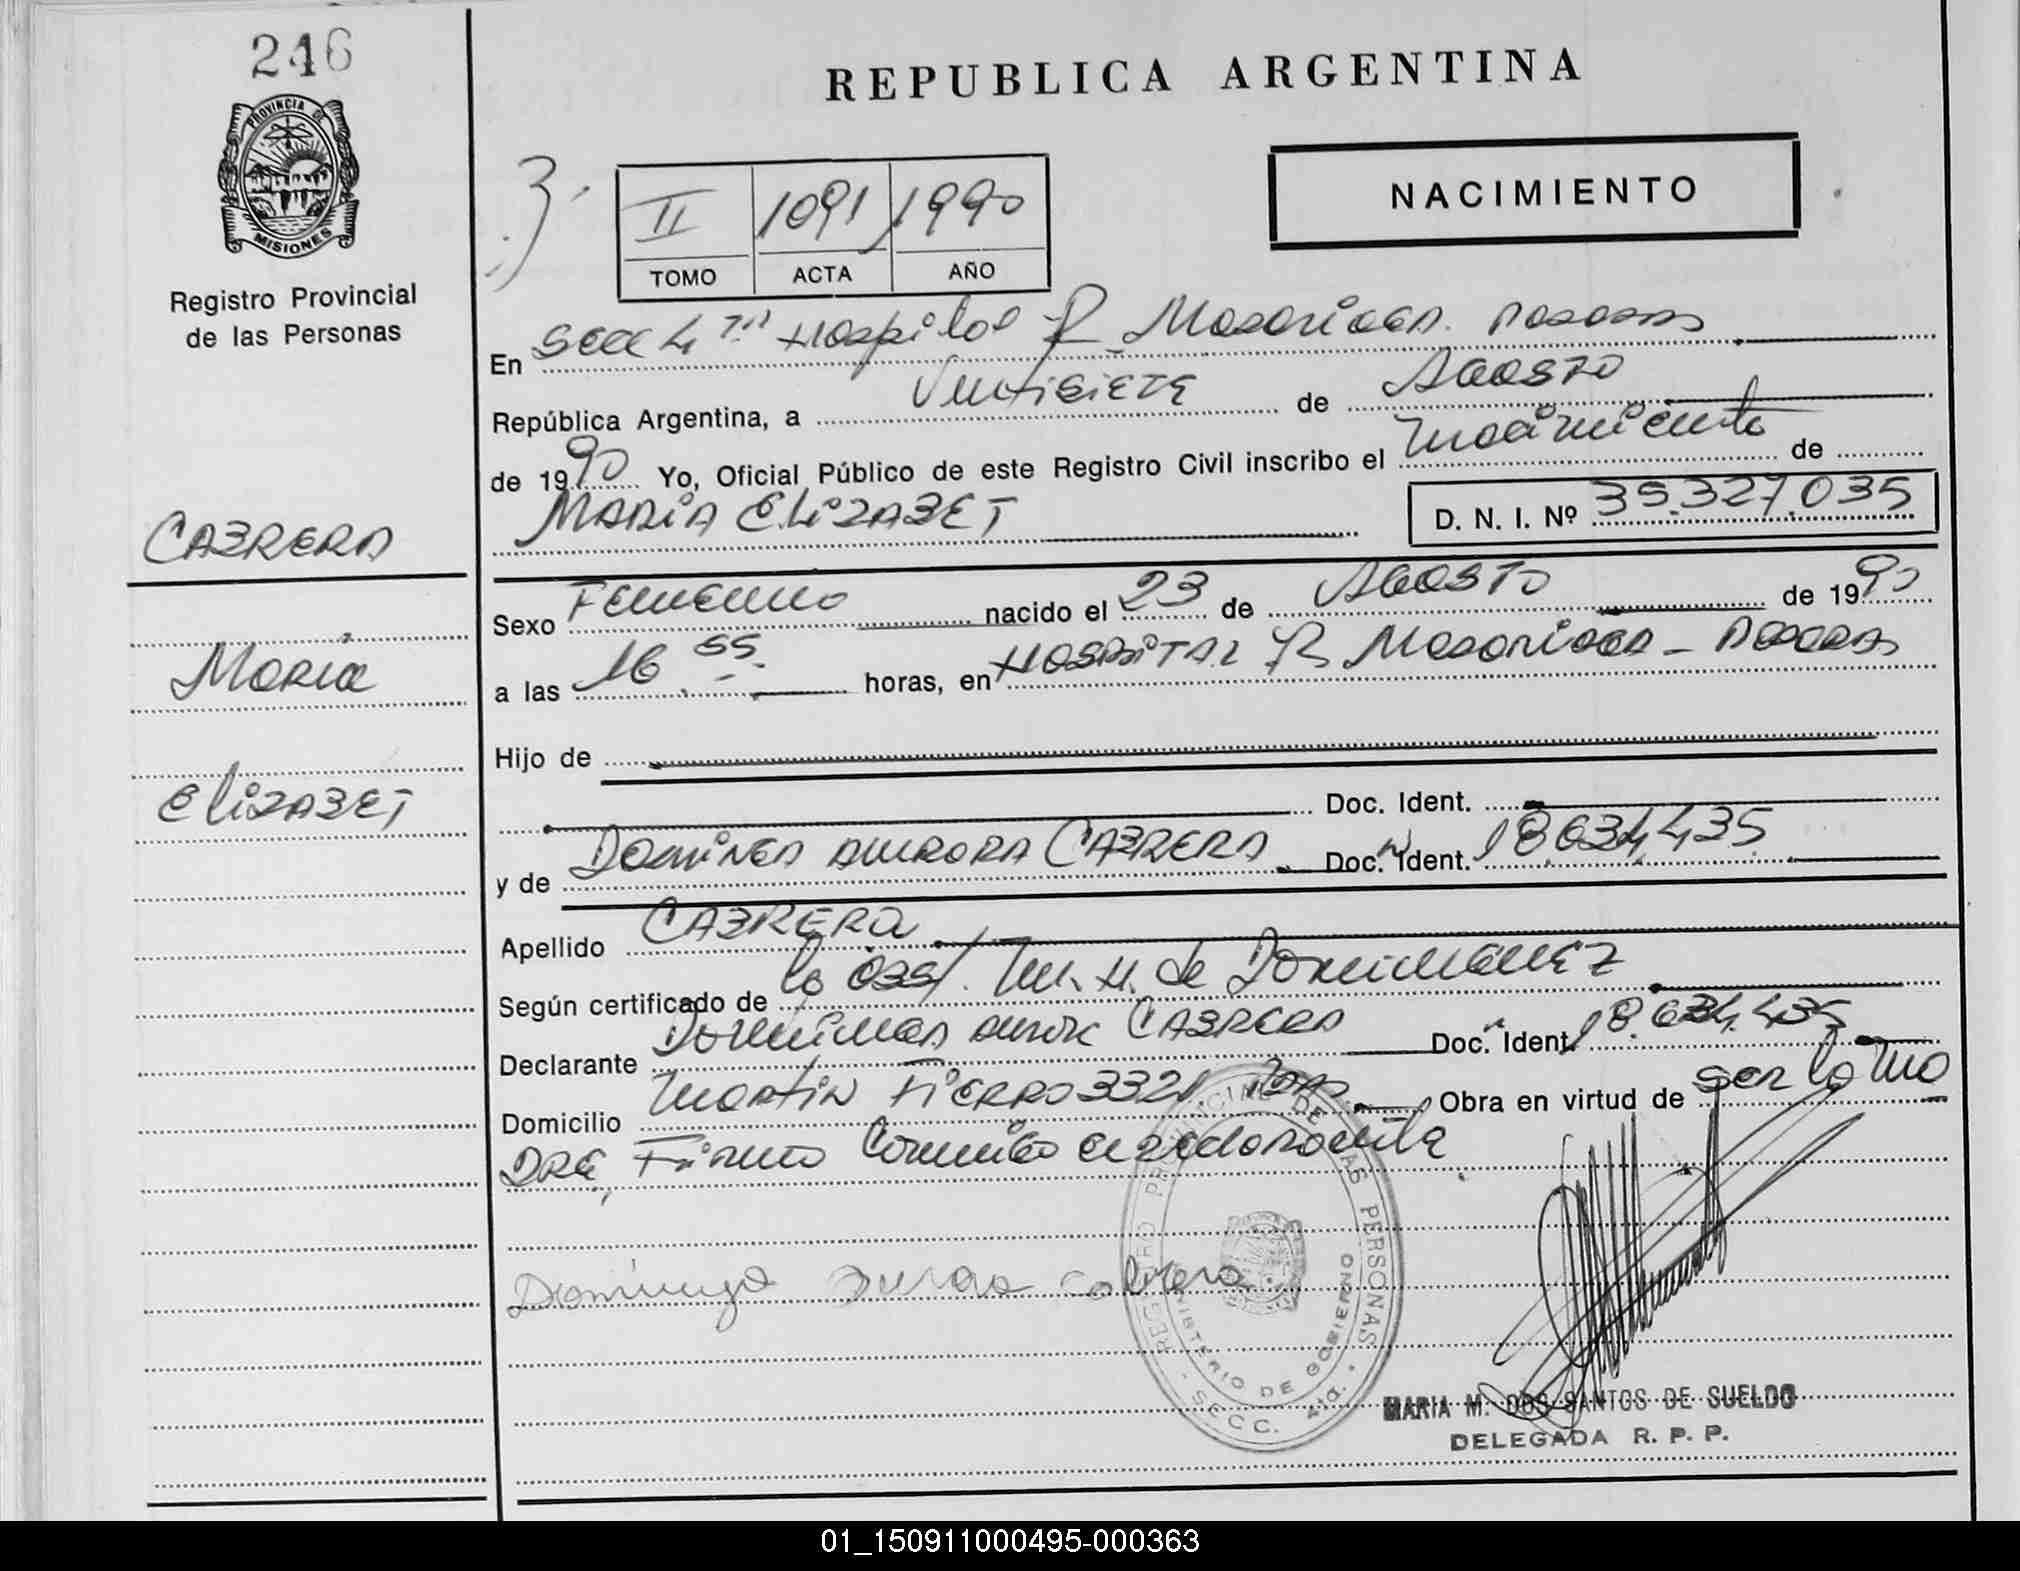 246
PROVINCIA DE
MISIONES
Registro Provincial
de las Personas
CABRERA
María
Elizabet
REPUBLICA ARGENTINA
NACIMIENTO
II 1091 1990
TOMO ACTA AÑO
En Secc 4ta Hospital R. Madariaga. Posadas
República Argentina, a Veintisiete de Agosto
de 1990 Yo, Oficial Público de este Registro Civil inscribo el nacimiento de
MARIA ELIZABET D. N. I. Nº 35.327.035
Sexo Femenino nacido el 23 de Agosto de 1990
a las 16 55 horas, en HOSPITAL R Madariaga - Posadas
Hijo de
Doc. Ident.
y de Dominga Aurora CABRERA Doc. Ident. 18.634.435
Apellido CABRERA
Según certificado de la Obst. M. H. de Dominguez
Declarante Dominga Auror CABRERA Doc. Ident. 18.634.435
Domicilio Martin Fierro 3321 Obra en virtud de ser la ma
DRE, Firma Conmigo
Dominga Aurora Cabrera
REGISTRO PROVINCIAL DE LAS PERSONAS
MINISTERIO DE GOBIERNO
SECC. 4ta.
MARIA M. DOS SANTOS DE SUELDO
DELEGADA R. P. P.
01_150911000495-000363